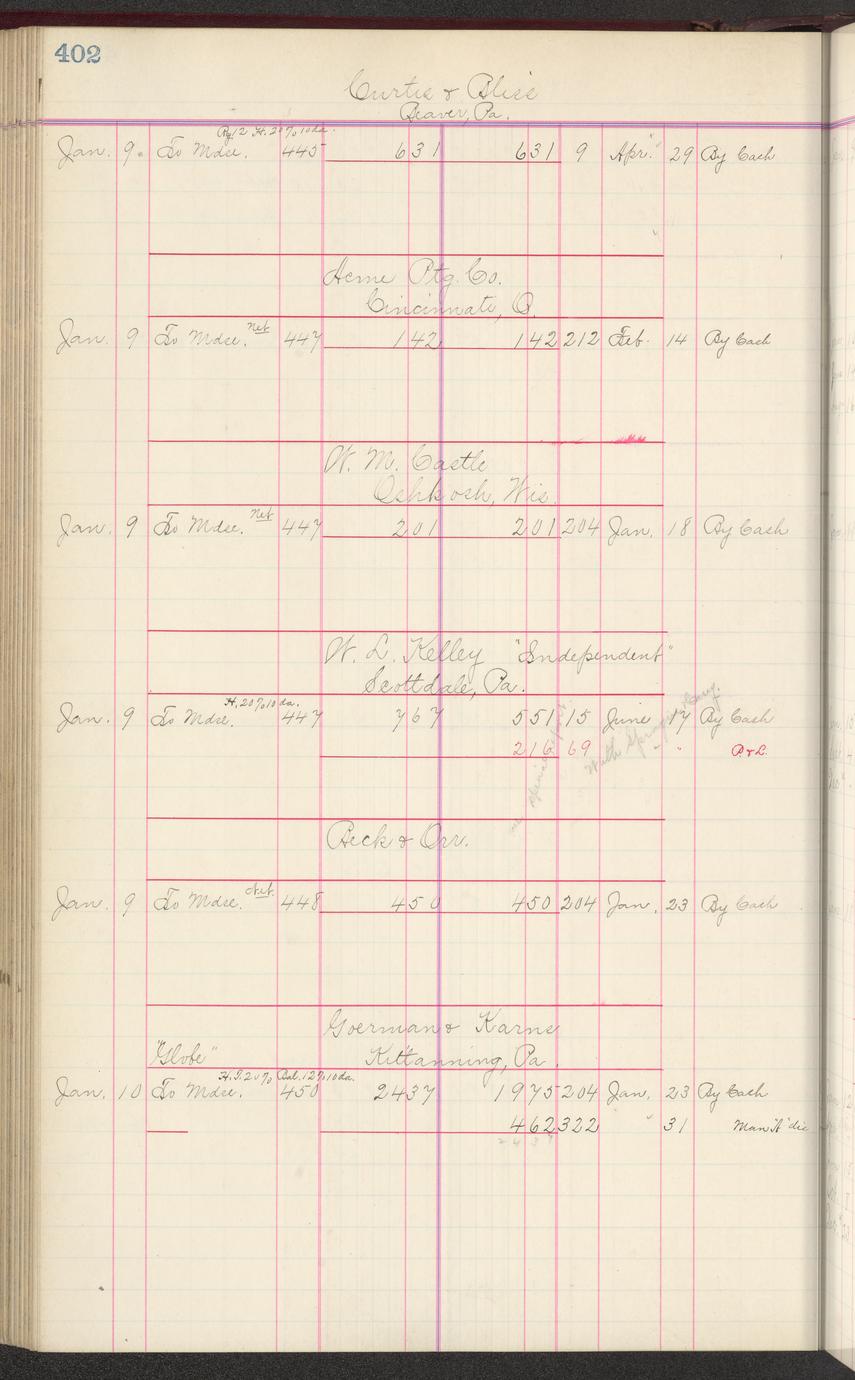 402
Curtis & Bliss
Beaver, Pa.
20% 10 da.
Jan. 9 To Mdse. 445 631 631 9 Apr. 29 By Cash
Acme Ptg. Co.
Cincinnati, O.
Net
Jan. 9 To Mdse. 447 142 142 212 Feb. 14 By Cash
W. M. Castle
Oshkosh, Wis.
Net
Jan. 9 To Mdse. 447 201 201 204 Jan. 18 By Cash
W. L. Kelley "Independent"
Scottdale, Pa.
H. 20% 10 da.
Jan. 9 To Mdse. 447 767 551 15 June 17 By Cash
216 69 " " P. & L.
Beck & Orr.
Net
Jan. 9 To Mdse. 448 450 450 204 Jan. 23 By Cash
Goerman & Karns
"Globe" Kittanning, Pa.
20% Bal. 12% 10 da.
Jan. 10 To Mdse. 450 2437 1975 204 Jan. 23 By Cash
462 322 " 31
2437